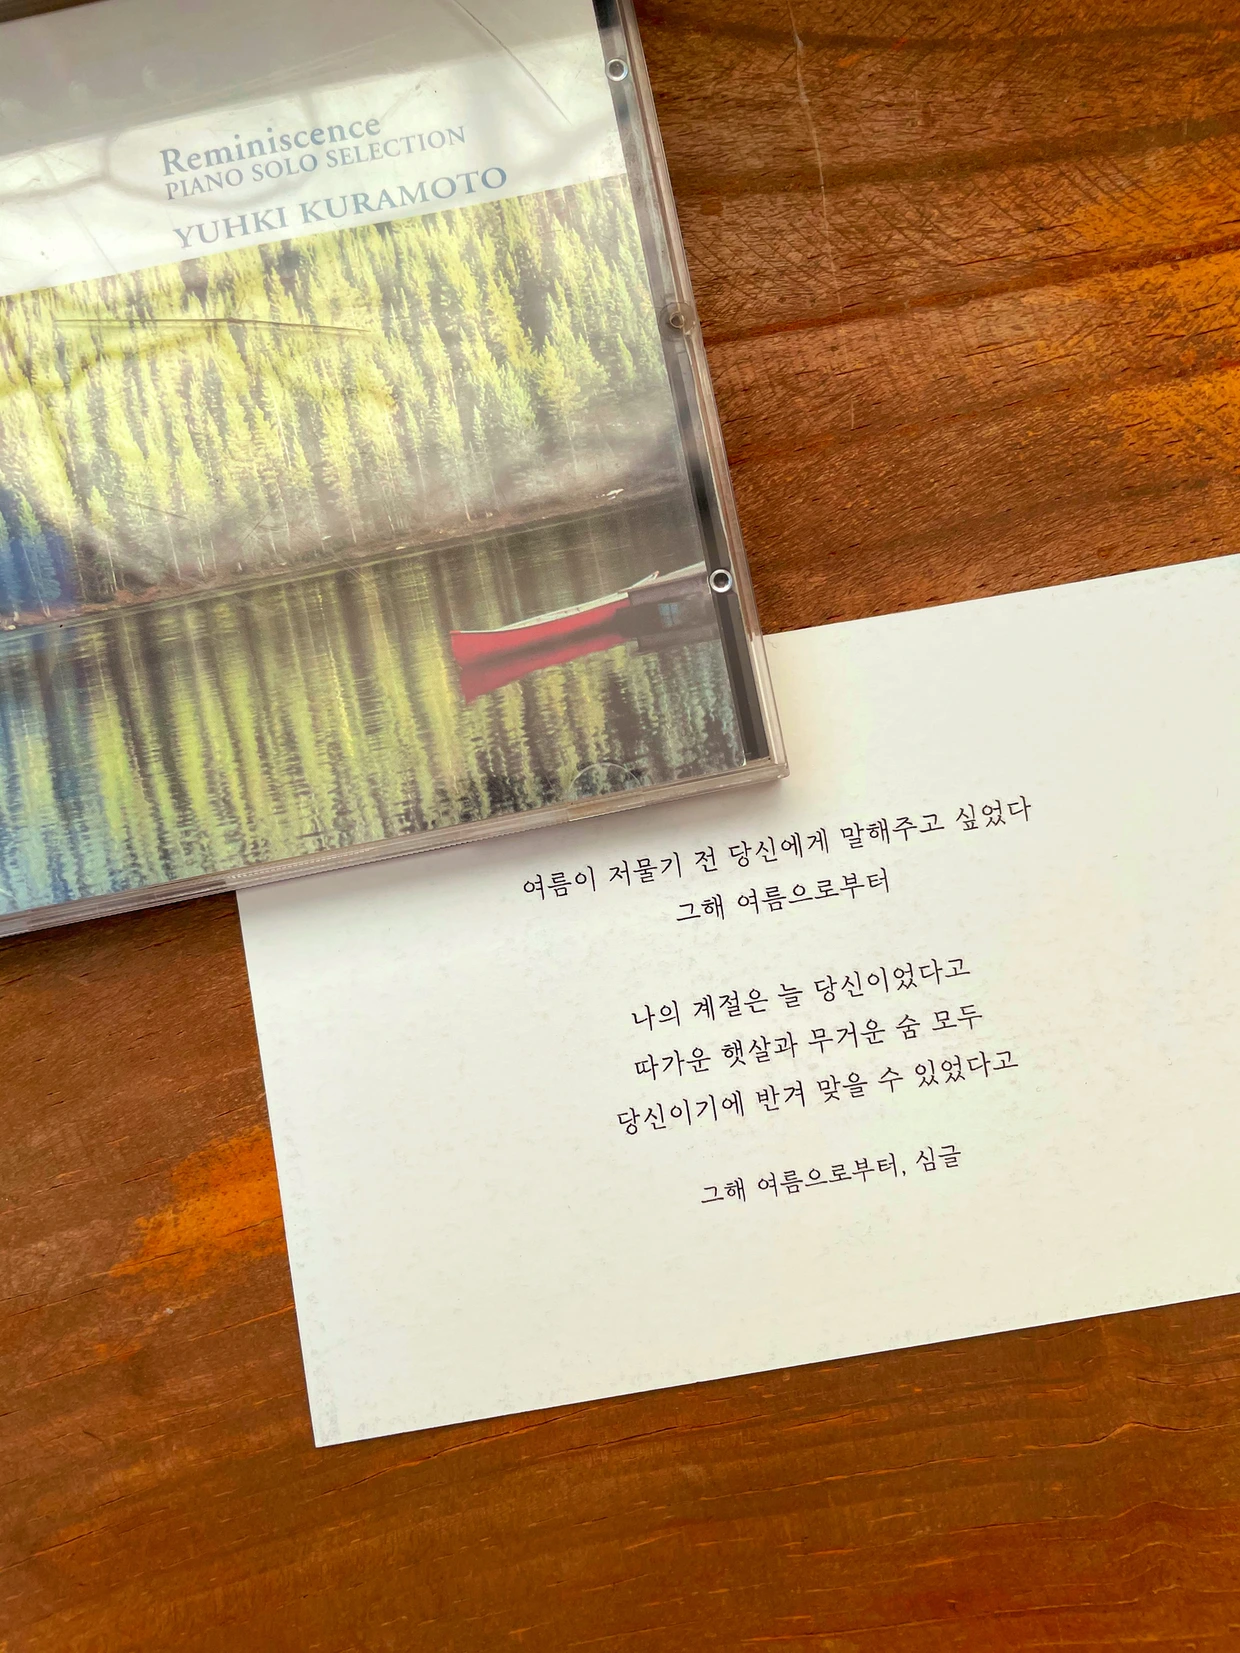 Reminiscence
PIANO SOLO SELECTION
YUHKI KURAMOTO
여름이 저물기 전 당신에게 말해주고 싶었다
그해 여름으로부터
나의 계절은 늘 당신이었다고
따가운 햇살과 무거운 숨 모두
당신이기에 반겨 맞을 수 있었다고
그해 여름으로부터, 심글